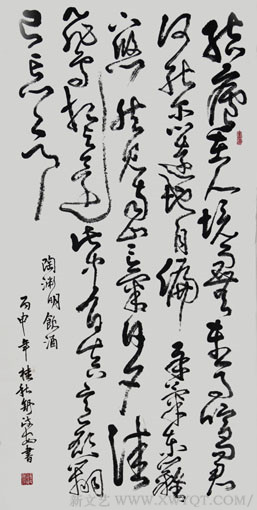 结庐在人境而无车马喧问君
何能尔心远地自偏采菊东篱
下悠然见南山山氣日夕佳
飞鸟相与还此中有真意欲辨
已忘言
陶渊明飲酒
丙申年桂秋
书
新文艺 WWW.XWYQT.COM